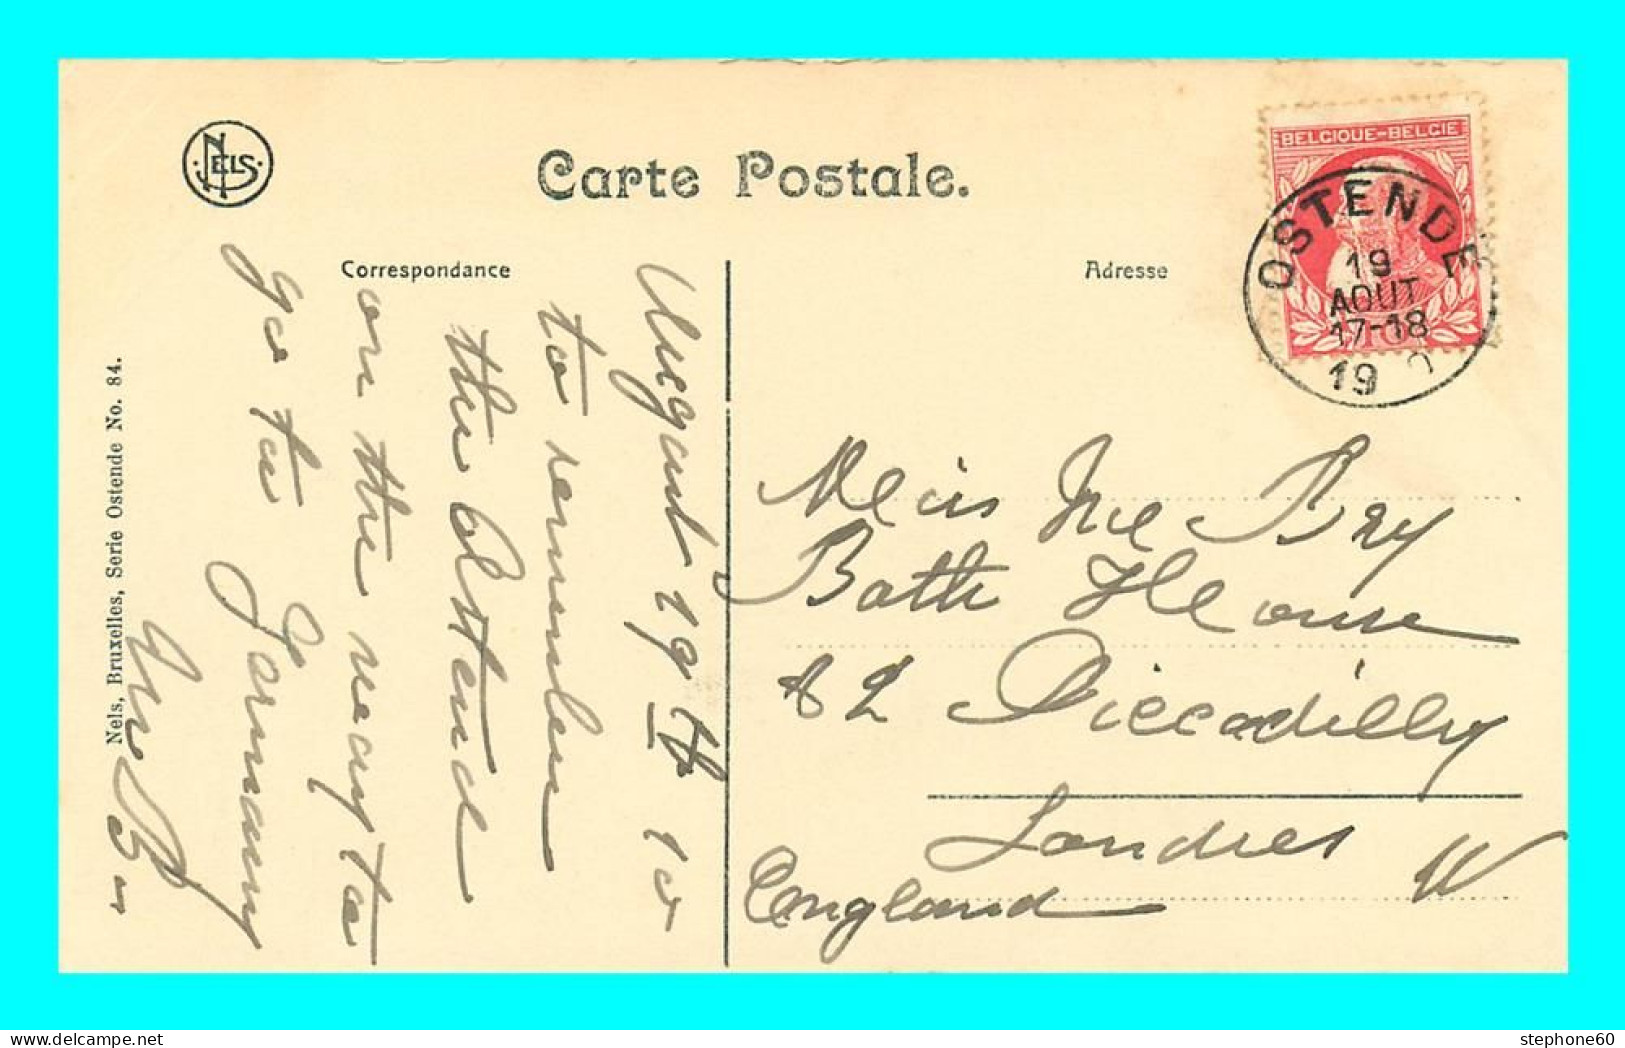 NELS
Carte Postale.
Correspondance
Adresse
BELGIQUE-BELGIE
OSTENDE
19
AOUT
17-18
19
August 19th 10
to remember
the Ostend
on the way to
go to Germany
Nels, Bruxelles, Serie Ostende No. 84.
Bath House
82 Piccadilly
Londres W
England
stephone60